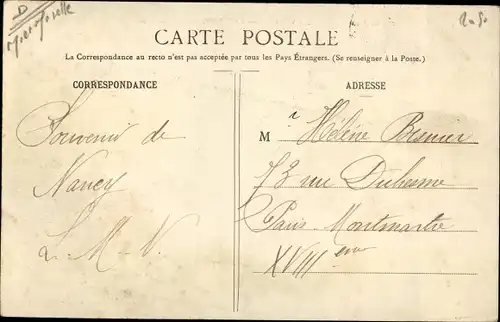 D
CARTE POSTALE
La Correspondance au recto n'est pas acceptée par tous les Pays Étrangers. (Se renseigner à la Poste.)
CORRESPONDANCE
Souvenir de
Nancy
L. M. V.
ADRESSE
M Hélène Besnier
73 rue Duhesme
Paris Montmartre
XVIIIeme